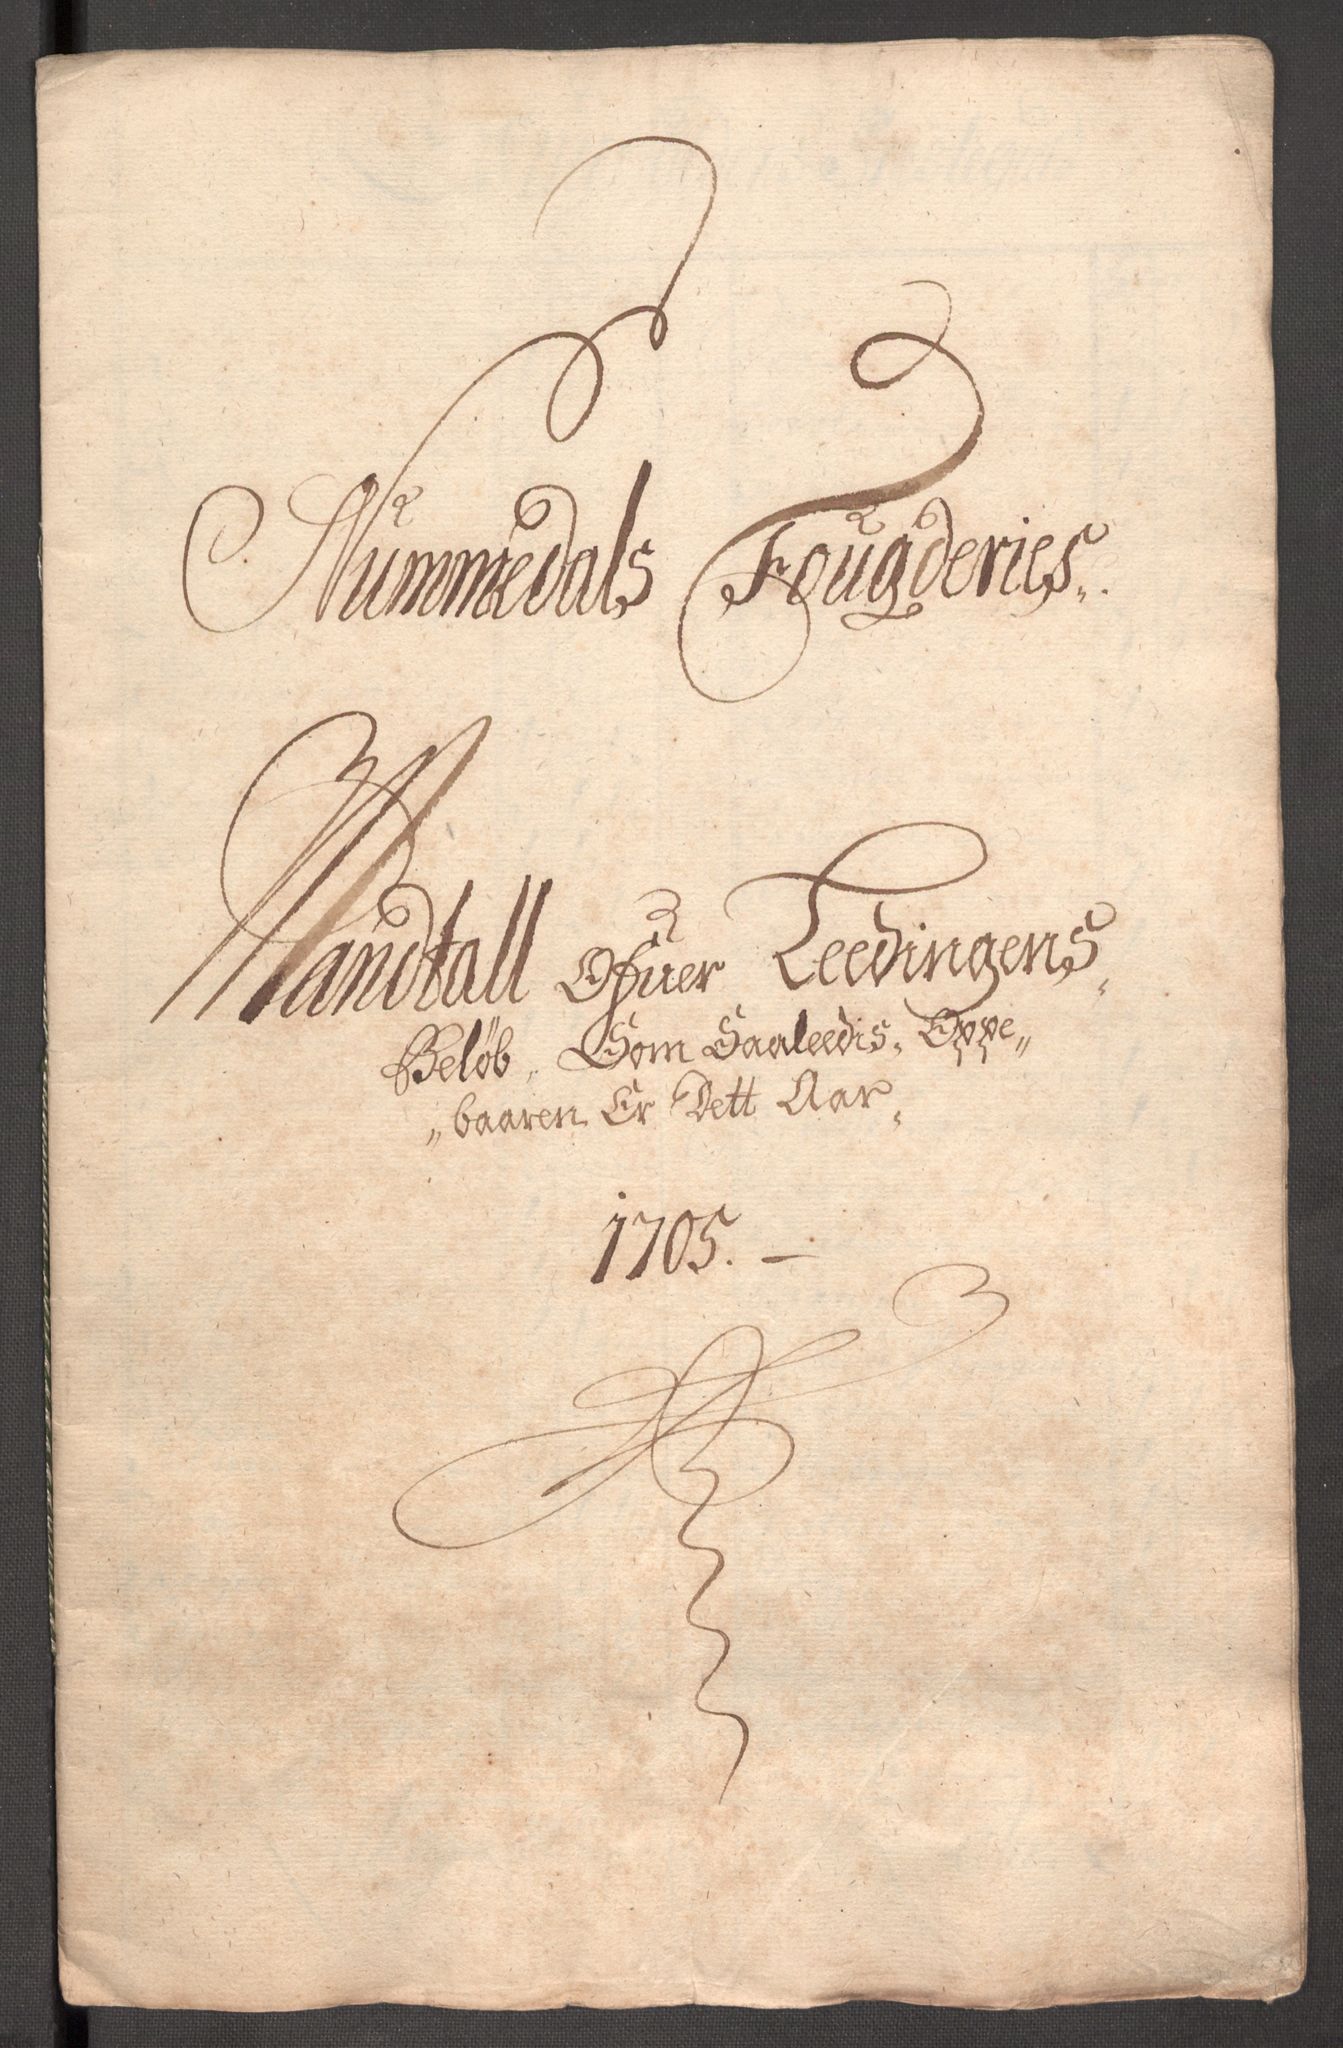 Nummedals Fougderies.
Mandtall Ofuer Leedingens
Beløb, Som Saaleedis, Oppe„
„baaren Er Dett Aar,
1705. —